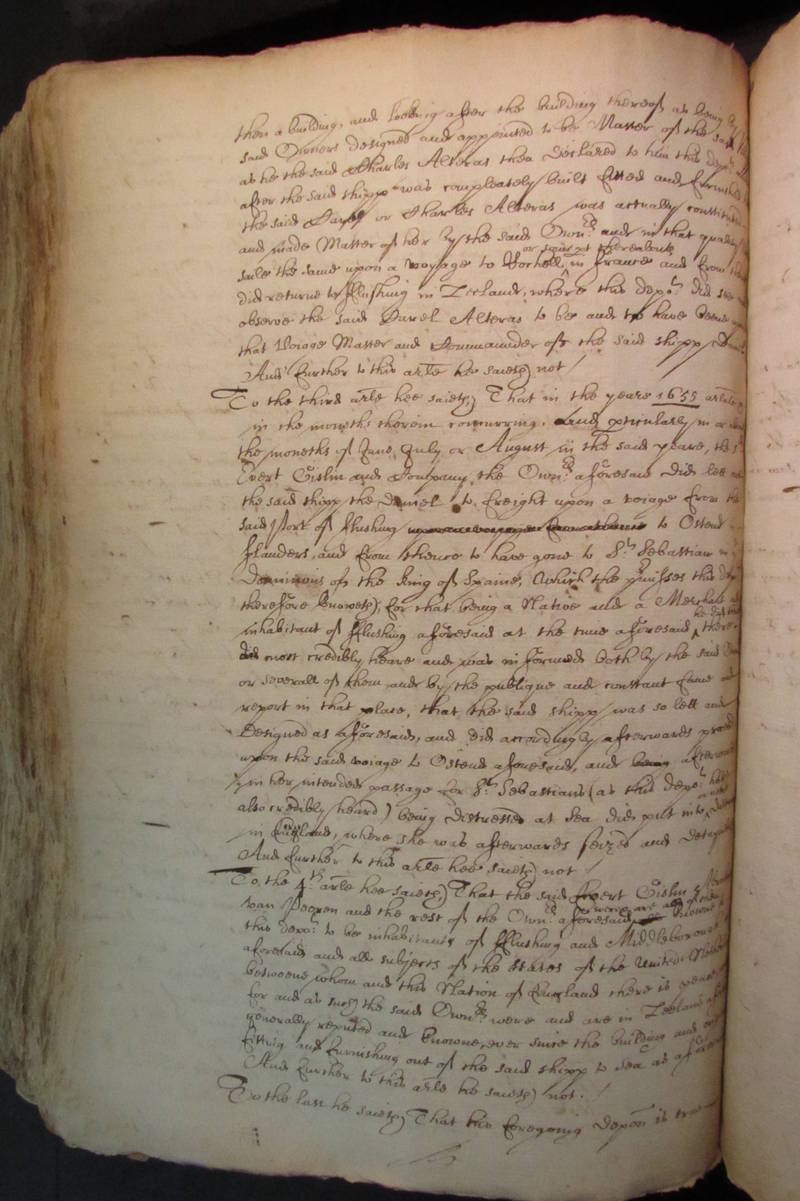 then a building, and looking after the building thereof as being by
said Owners designed and appointed to be Master of the said
as he the said Charles Alteras then declared to him this dept
after the said shipp was compleately built fitted and furnished
the said Darel or Charles Alteras was actually constituted
and made Master of her by the said Own:rs and in that quality
or some port thereabouts
saile the same upon a voyage to Rochell, in France and from
did returne to fflushing in Zeland, where this depo:t did see
observe the said Darel Alteras to be and to have beene
that Voiage Master and Commaunder of the said shipp
And further to this arle hee saieth not /
To the third arle hee saieth That in the yeare 1655 arlate
in the moneths therein concurring, And pticularly in or
the moneths of June, July or August in the said yeare, the sd
Evert Gislin and Company the Own:rs aforesaid did lett
the said shipp the Daniel to freight upon a voiage from the
said Port of fflushing to Ostend in
fflanders, and from thence to have gone to S:t Sebastian in
Dominions of the King of Spaine, Which the pmisses this dept
therefore knoweth, for that being a Native and a Merchant
inhabitant of fflushing aforesaid at the time aforesaid he did there
did most credibly heare and was informed both by the said
or severall of them and by the publique and constant fame and
report in that place, that the said shipp was so lett and
designed as aforesaid, and did accordingly afterwards proceed
upon the said voiage to Ostend aforesaid, and being afterwards
in her intended passage for S:t Sebastians (as this depo:t hath
also credibly heard) being distressed at Sea did put into
in England, where she was afterwards seized and detayned
And further to this arle hee saieth not /
To the 4:th arle hee saieth That the said Evert Gislin
van Pogren and the rest of the Own:rs aforesaid were and are all of them knowne
this depo:t to be inhabitants of fflushing and Middleborough
aforesaid and all subjects of the States of the United
betweene whom and this Nation of England there is peace
for and as such the said Own:rs were and are in Zeeland
generally reputed and knowne, ever since the building and
fitting and furnishing out of the said shipp to Sea as aforesaid
And further to this arle he saieth not. /
To the last he saieth That his foregoing depon is true